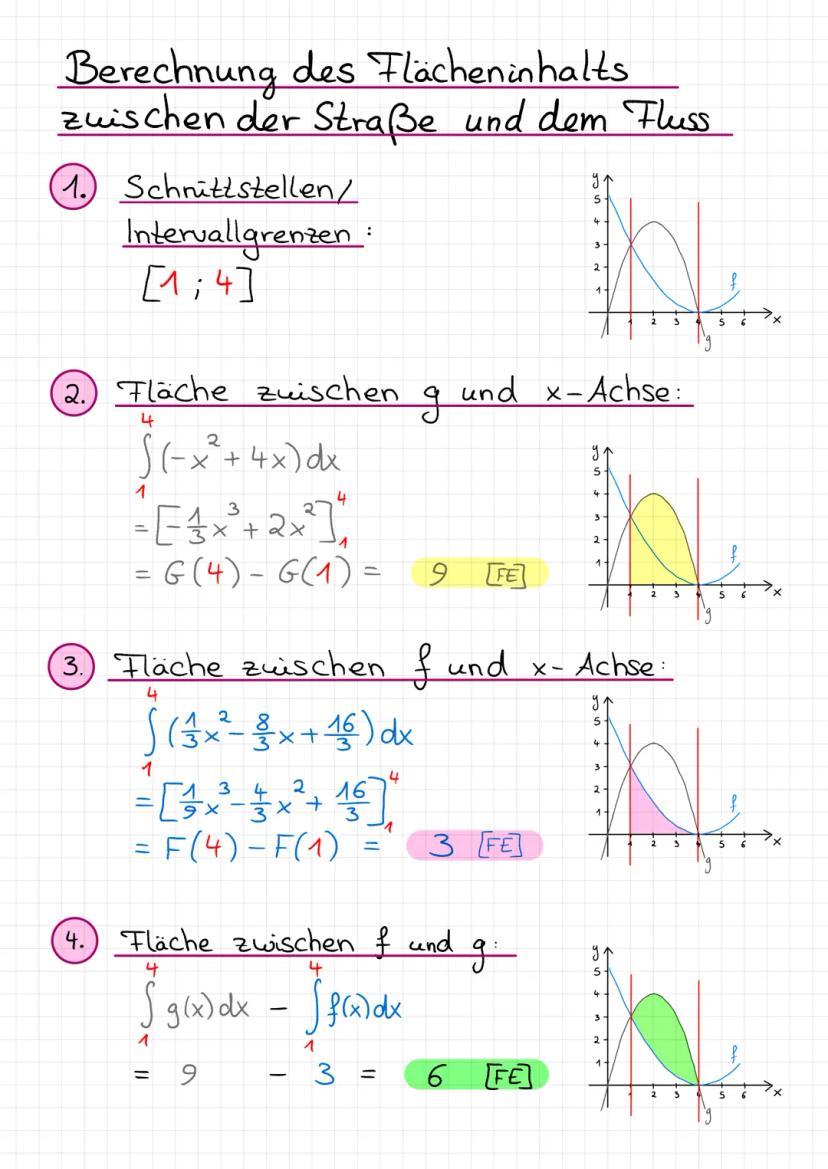 Berechnung des Flächeninhalts
zwischen der Straße und dem Fluss
1. Schnittstellen/
Intervallgrenzen:
[1 ; 4]
y
5
4
3
2
1
f
1 2 3 4 5 6 x
g
2. Fläche zwischen g und x-Achse:
∫₁⁴ (-x² + 4x) dx
= [-1/3 x³ + 2x²]₁⁴
= G(4) - G(1) = 9 [FE]
y
5
4
3
2
1
f
1 2 3 4 5 6 x
g
3. Fläche zwischen f und x-Achse:
∫₁⁴ (1/3 x² - 8/3 x + 16/3) dx
= [1/9 x³ - 4/3 x² + 16/3]₁⁴
= F(4) - F(1) = 3 [FE]
y
5
4
3
2
1
f
1 2 3 4 5 6 x
g
4. Fläche zwischen f und g:
∫₁⁴ g(x) dx - ∫₁⁴ f(x) dx
= 9 - 3 = 6 [FE]
y
5
4
3
2
1
f
1 2 3 4 5 6 x
g